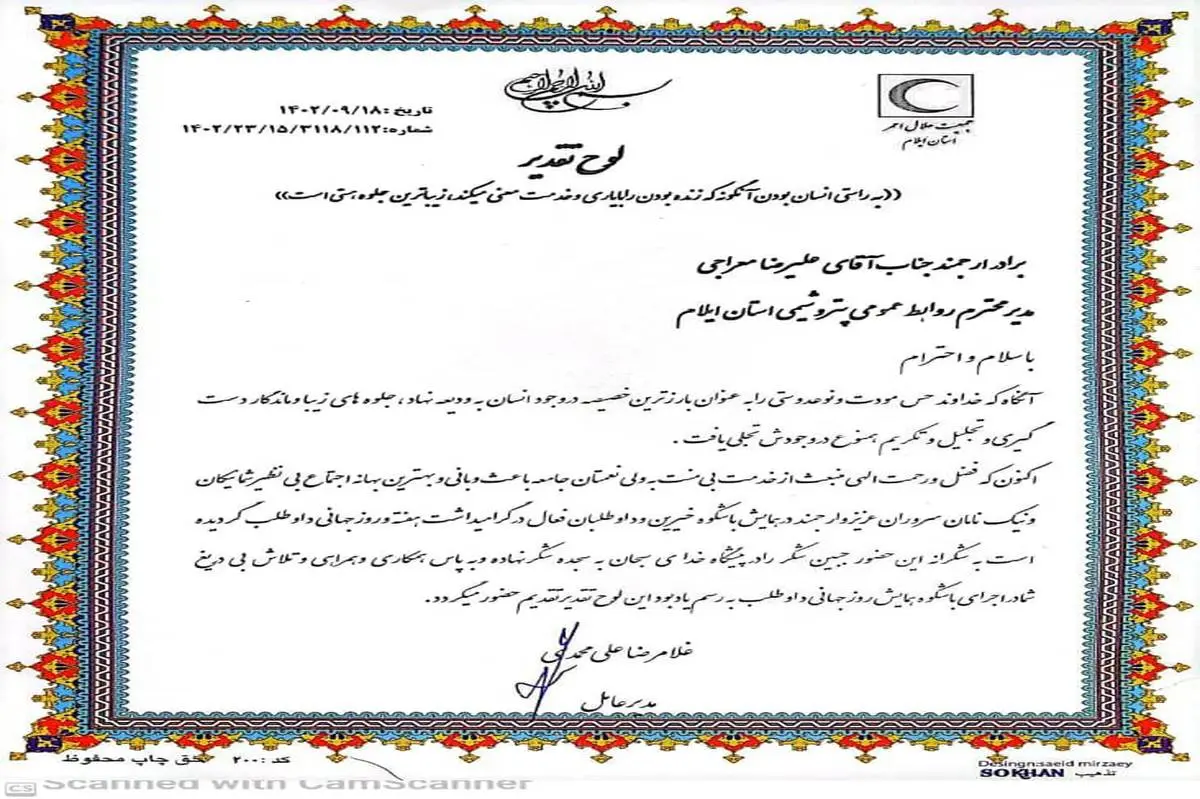 بسم الله الرحمن الرحیم
جمعیت هلال احمر
استان ایلام
تاریخ :۱۴۰۲/۰۹/۱۸
شماره:۱۴۰۲/۲۳/۱۵/۳۱۱۸/۱۱۲
لوح تقدیر
((به راستی انسان بودن آنگونه که زنده بودن را با یاری و خدمت معنی میکند، زیباترین جلوه هستی است))
برادر ارجمند جناب آقای علیرضا معراجی
مدیر محترم روابط عمومی پتروشیمی استان ایلام
با سلام و احترام
آنگاه که خداوند حس مودت و نوعدوستی را به عنوان بارزترین خصیصه در وجود انسان به ودیعه نهاد، جلوه های زیبا و ماندگار دست
گیری و تجلیل و تکریم همنوع در وجودش تجلی یافت .
اکنون که فضل و رحمت الهی منبعث از خدمت بی منت به ولی نعمتان جامعه باعث و بانی و بهترین بهانه اجتماع بی نظیر شایگان
و نیک نامان سروران عزیز و ارجمند در همایش باشکوه خیرین و داوطلبان فعال در گرامیداشت هفته و روز جهانی داوطلب گردیده
است به شکرانه این حضور جبین شکر را در پیشگاه خدای سبحان به سجده شکر نهاده و به پاس همکاری و همراهی و تلاش بی دریغ
شما در اجرای باشکوه همایش روز جهانی داوطلب به رسم یادبود این لوح تقدیر تقدیم حضور میگردد.
غلامرضا علی محمدی
مدیرعامل
کد : ۲۰۰ حق چاپ محفوظ
Desingn:saeid mirzaey
SOKHAN تذهیب
CS Scanned with CamScanner